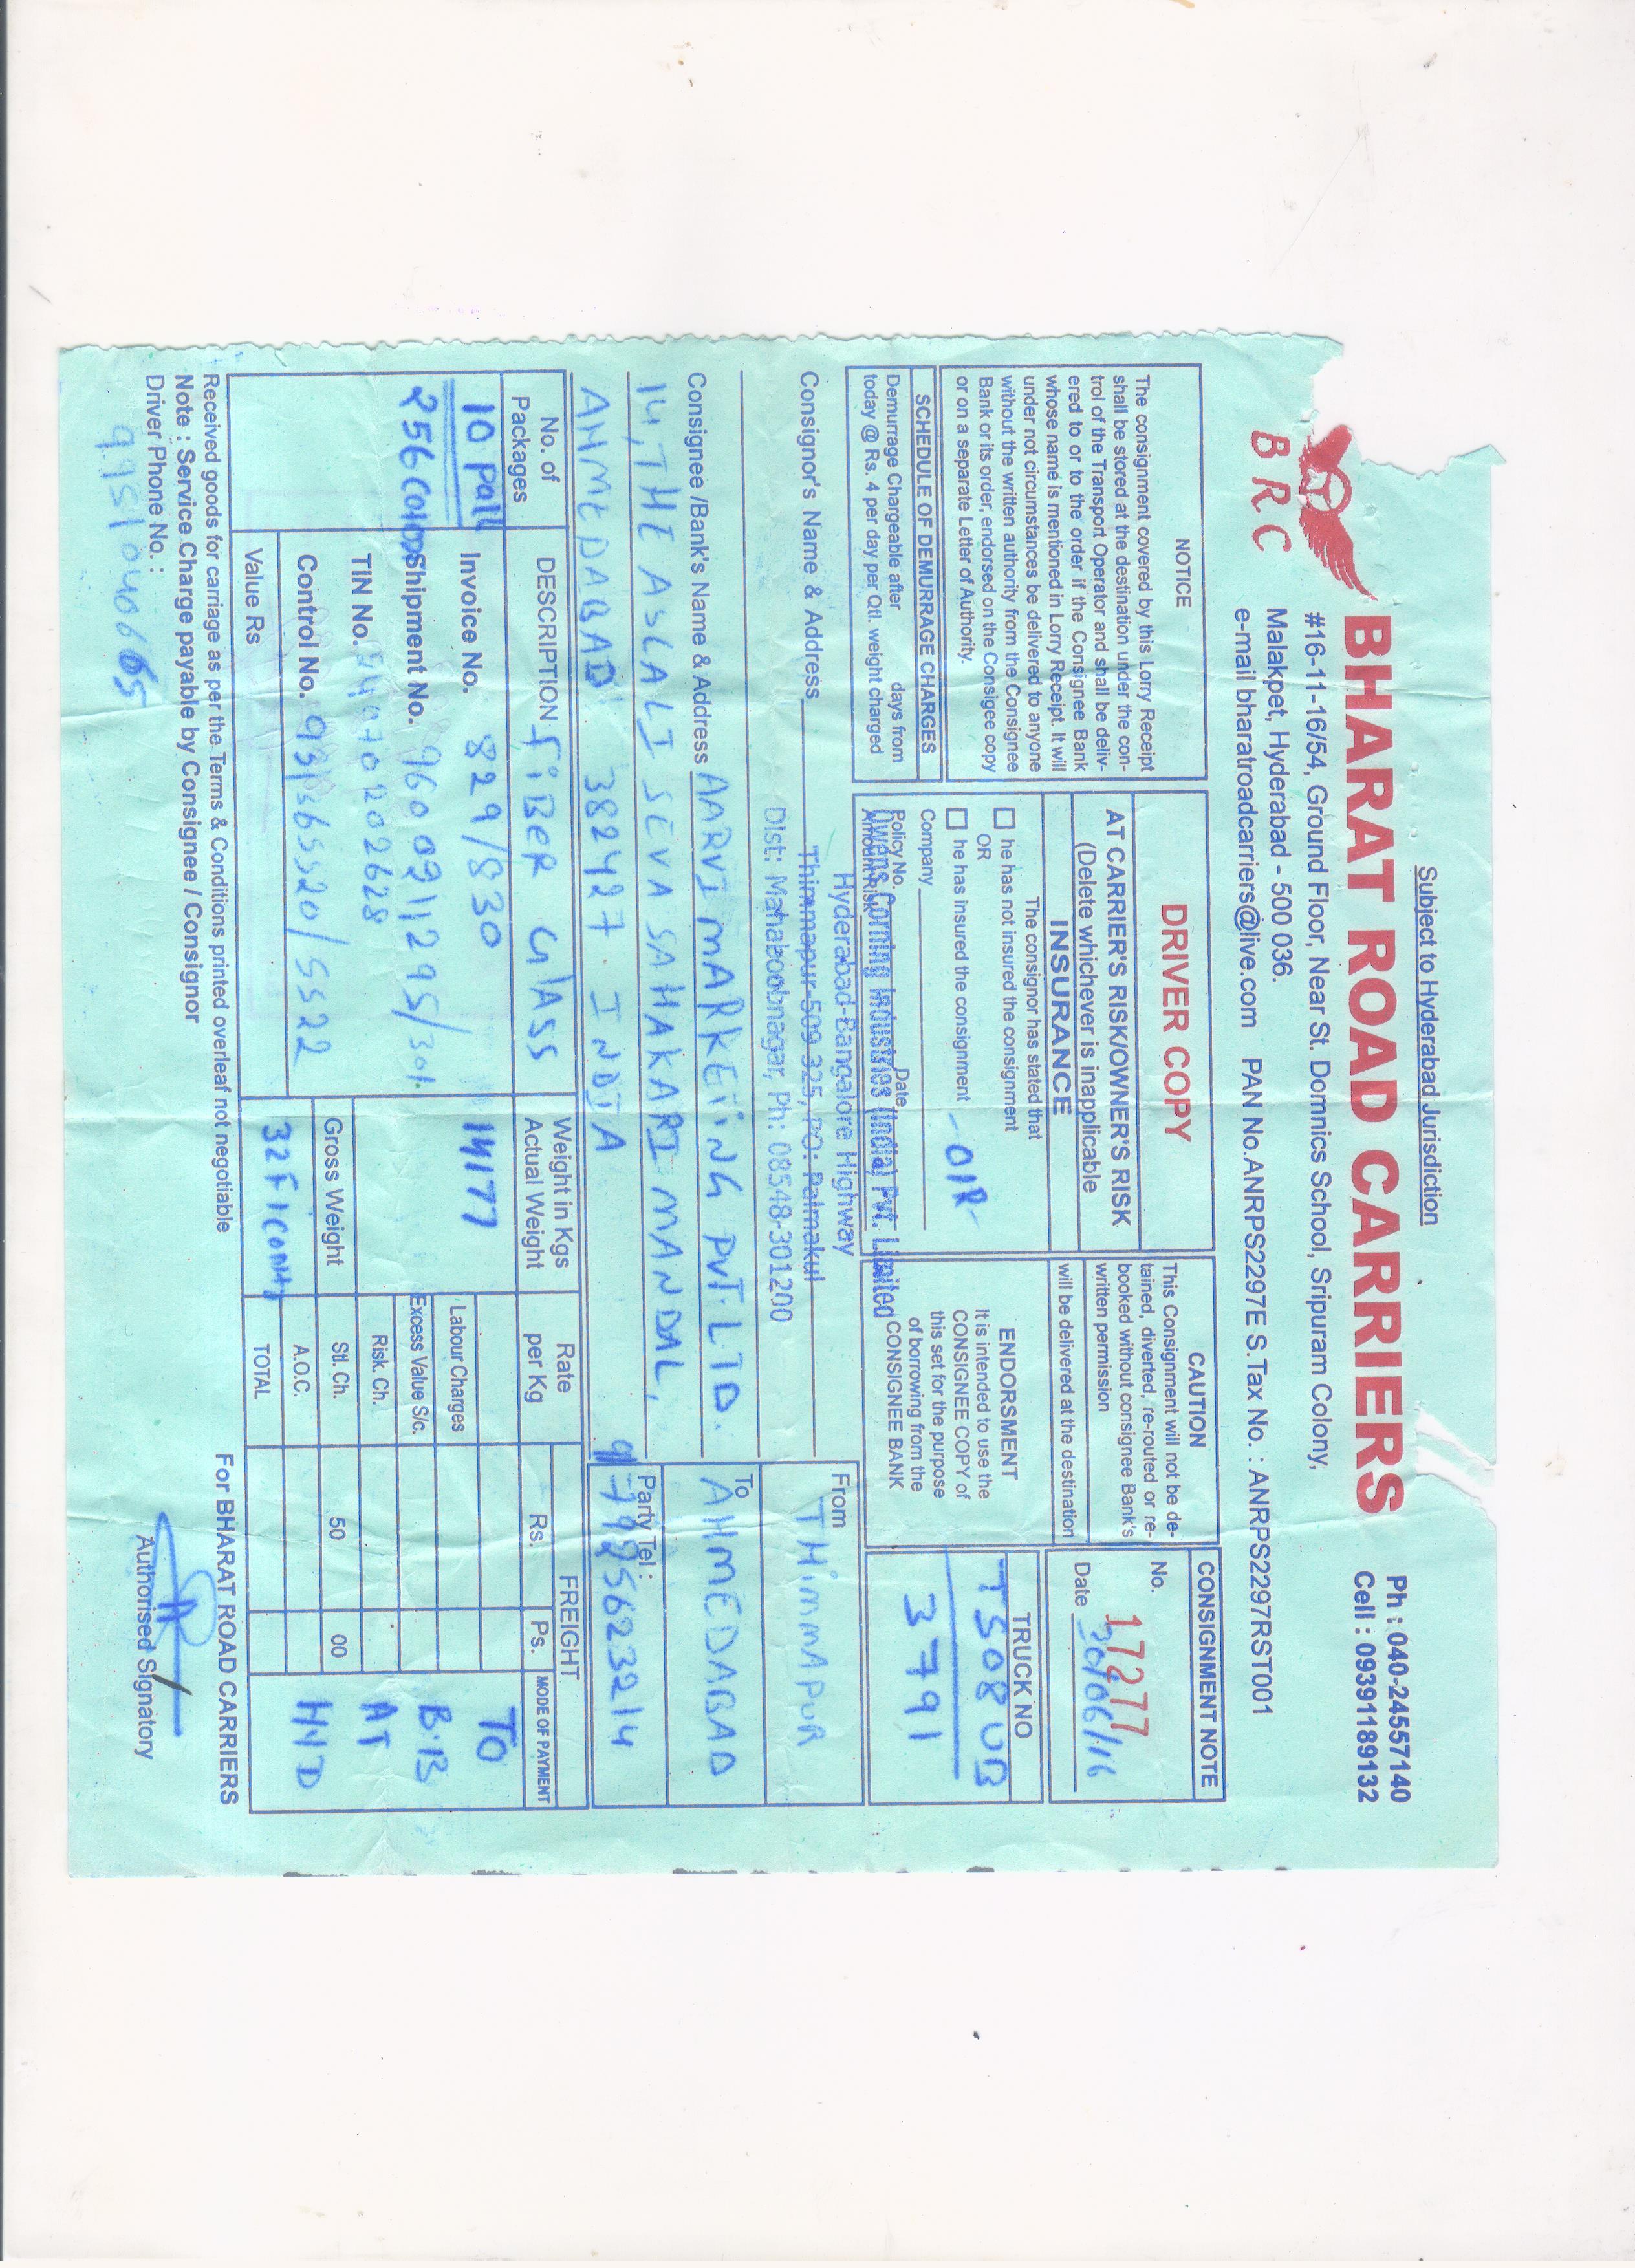 Subject to Hyderabad Jurisdiction
Ph : 040-24557140
Cell : 09391189132
BHARAT ROAD CARRIERS
BRC
#16-11-16/54, Ground Floor, Near St. Domnics School, Sripuram Colony,
Malakpet, Hyderabad - 500 036.
e-mail bharatroadcarriers@live.com PAN No.ANRPS2297E S.Tax No. : ANRPS2297RST001
NOTICE
The consignment covered by this Lorry Receipt
shall be stored at the destination under the con-
trol of the Transport Operator and shall be deliv-
ered to or to the order if the Consignee Bank
whose name is mentioned in Lorry Receipt. It will
under not circumstances be delivered to anyone
without the written authority from the Consignee
Bank or its order, endorsed on the Consigee copy
or on a separate Letter of Authority.
SCHEDULE OF DEMURRAGE CHARGES
Demurrage Chargeable after days from
today @ Rs. 4 per day per Qtl. weight charged
DRIVER COPY
AT CARRIER'S RISK/OWNER'S RISK
(Delete whichever is inapplicable
INSURANCE
The consignor has stated that
he has not insured the consignment
OR
he has insured the consignment - OIR -
Company
Policy No. Date
Amount Risk
CAUTION
This Consignment will not be de-
tained, diverted, re-routed or re-
booked without consignee Bank's
written permission
will be delivered at the destination
ENDORSMENT
It is intended to use the
CONSIGNEE COPY of
this set for the purpose
of borrowing from the
CONSIGNEE BANK
CONSIGNMENT NOTE
No. 17277
Date 30/06/16
TRUCK NO
TS08UB
3791
Owens Corning Industries (India) Pvt. Limited
Hyderabad-Bangalore Highway
Consignor's Name & Address Thimmapur-509 325, PO: Palmakul
Dist: Mahaboobnagar, Ph: 08548-301200
From THIMMAPUR
Consignee /Bank's Name & Address AARVI MARKETING PVT LTD.
14, THE ASLALI SEVA SAHAKARI MANDAL,
AHMEDABAD 382427 INDIA
To AHMEDABAD
Party Tel :
917925623214
No. of
Packages
DESCRIPTION FIBER GLASS
Weight in Kgs
Actual Weight
Rate
per Kg
FREIGHT
Rs. Ps.
MODE OF PAYMENT
10 Pall
Invoice No. 829/830
14177
Labour Charges
TO
Shipment No.
Excess Value S/c.
B.B
TIN No.
Risk. Ch.
AT
Control No.
Gross Weight
Stl. Ch. 50 00
A.O.C.
HYD
Value Rs
TOTAL
Received goods for carriage as per the Terms & Conditions printed overleaf not negotiable
For BHARAT ROAD CARRIERS
Note : Service Charge payable by Consignee / Consignor
Driver Phone No. :
Authorised Signatory